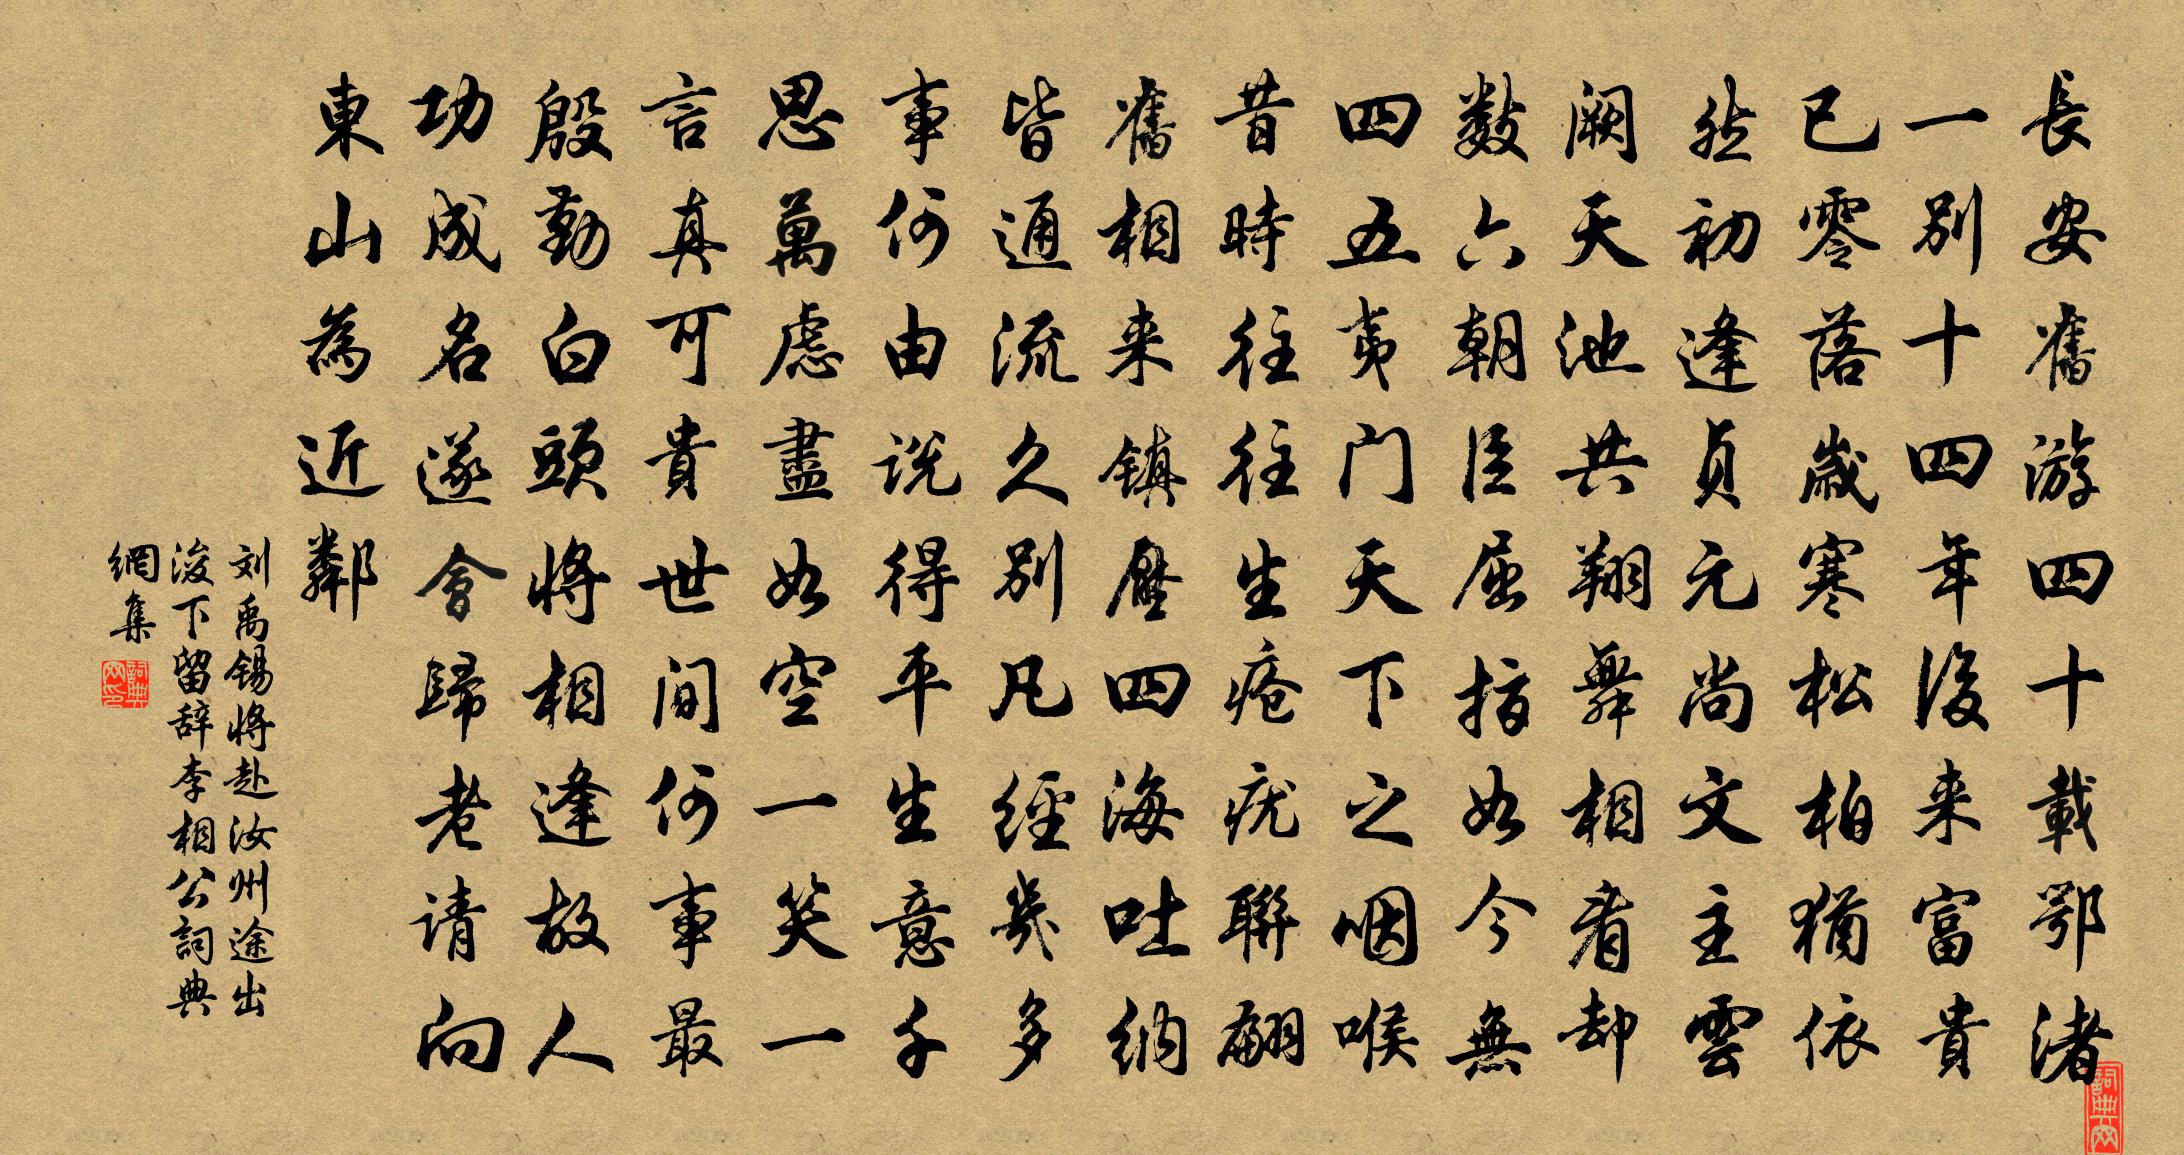 長安舊游四十載鄂渚
一別十四年後来富貴
已零落歲寒松柏猶依
然初逢貞元尚文主雲
闕天池共翔舞相看却
數六朝臣屈指如今無
四五夷门天下之咽喉
昔時往往生疮疣聯翩
舊相来镇壓四海吐纳
皆通流久別凡經幾多
事何由说得平生意千
思萬慮盡如空一笑一
言真可貴世间何事最
殷勤白頭將相逢故人
功成名遂會歸老请向
東山為近鄰
刘禹锡將赴汝州途出
浚下留辞李相公詞典
網集
詞典网印
詞典网